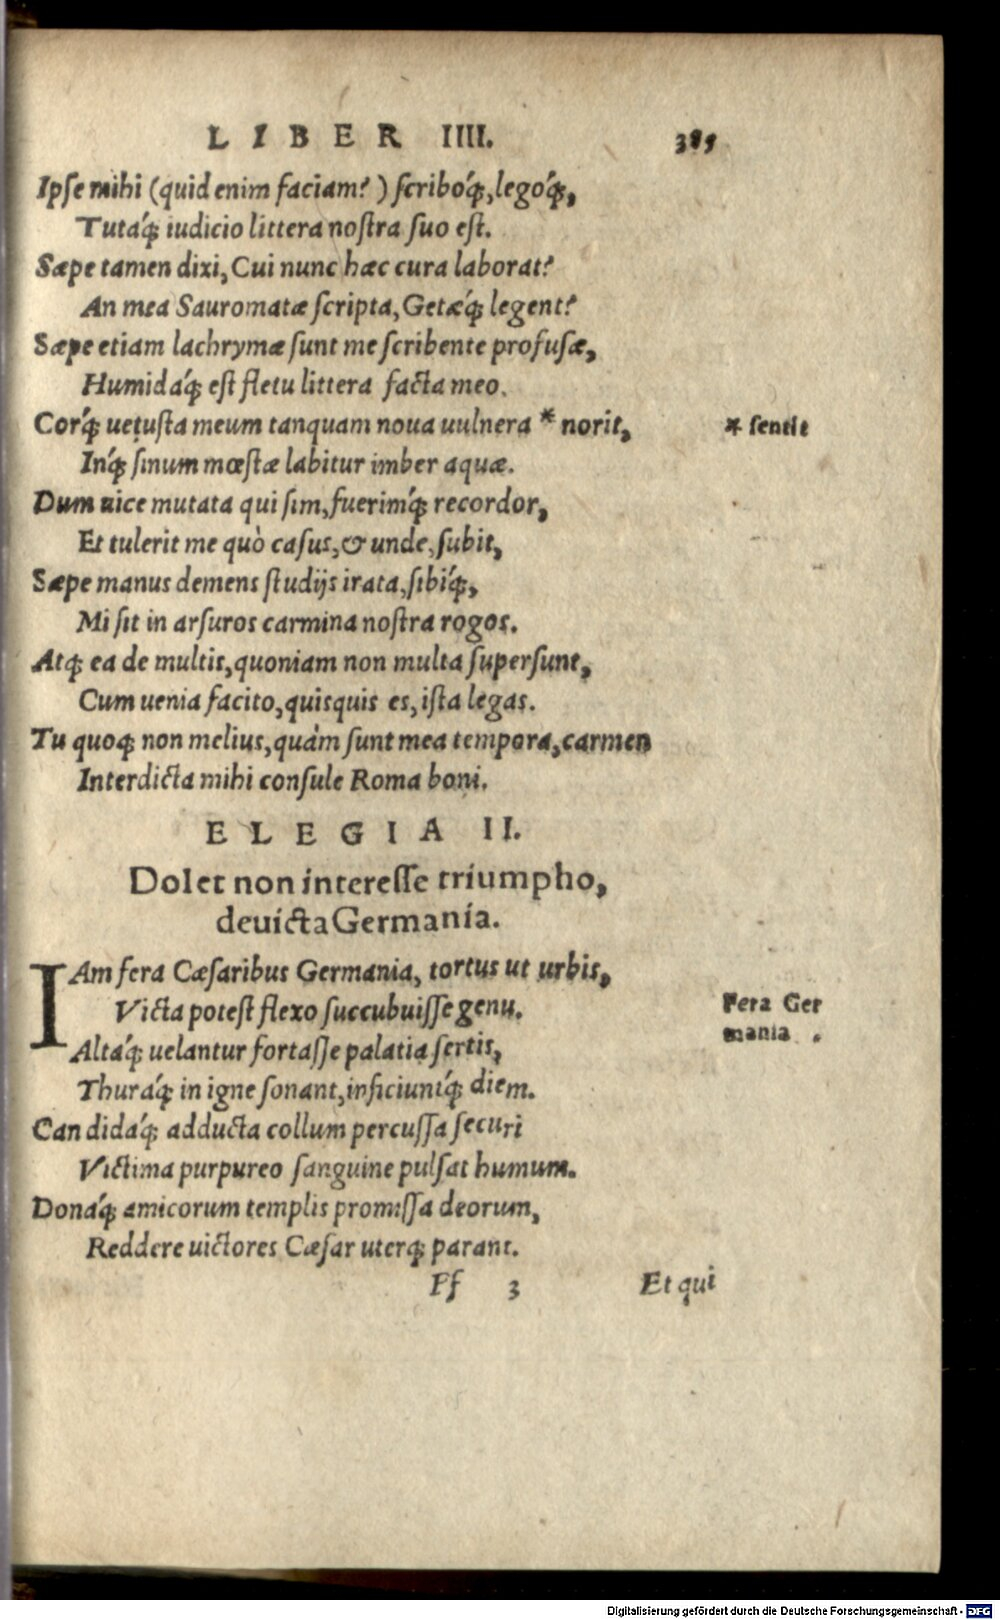 LIBER IIII. 385
Ipse mihi (quid enim faciam?) scriboq́;, legoq́;,
Tutaq́; iudicio littera nostra suo est.
Sæpe tamen dixi, Cui nunc hæc cura laborat?
An mea Sauromatæ scripta, Getæq́; legent?
Sæpe etiam lachrymæ sunt me scribente profusæ,
Humidaq́; est fletu littera facta meo.
Corq́; uetusta meum tanquam noua uulnera * norit,
* sentit
Inq́; sinum mœstæ labitur imber aquæ.
Dum uice mutata qui sim, fuerimq́; recordor,
Et tulerit me quò casus, & unde, subit,
Sæpe manus demens studijs irata, sibiq́;,
Misit in arsuros carmina nostra rogos.
Atq; ea de multis, quoniam non multa supersunt,
Cum uenia facito, quisquis es, ista legas.
Tu quoq; non melius, quàm sunt mea tempora, carmen
Interdicta mihi consule Roma boni.
ELEGIA II.
Dolet non interesse triumpho,
deuicta Germania.
IAm fera Cæsaribus Germania, tortus ut urbis,
Victa potest flexo succubuisse genu.
Fera Ger
mania .
Altaq́; uelantur fortasse palatia sertis,
Thuraq́; in igne sonant, inficiuntq́; diem.
Candidaq́; adducta collum percussa securi
Victima purpureo sanguine pulsat humum.
Donaq́; amicorum templis promissa deorum,
Reddere uictores Cæsar uterq; parant.
Ff 3 Et qui
Digitalisierung gefördert durch die Deutsche Forschungsgemeinschaft - DFG